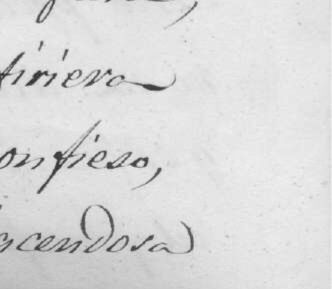 tiriera
onfieso,
acendosa